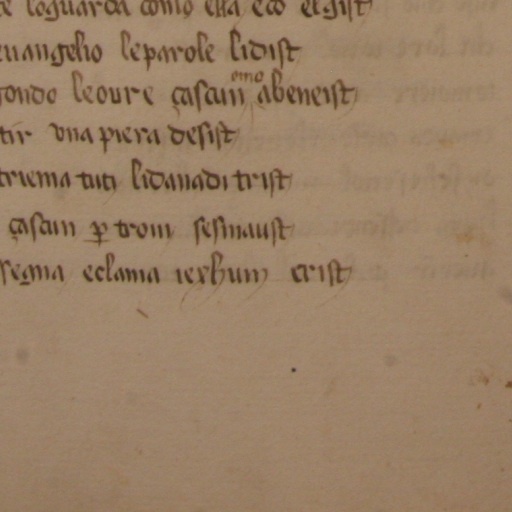 e loguarda como ella eco elgist
euangelio leparole lidist
gondo leoure çascun omo abeneist
tir vna piera desist
triema tuti lidanadi trist
çascun ꝑ trom sesmaust
segna eclama iexhum crist